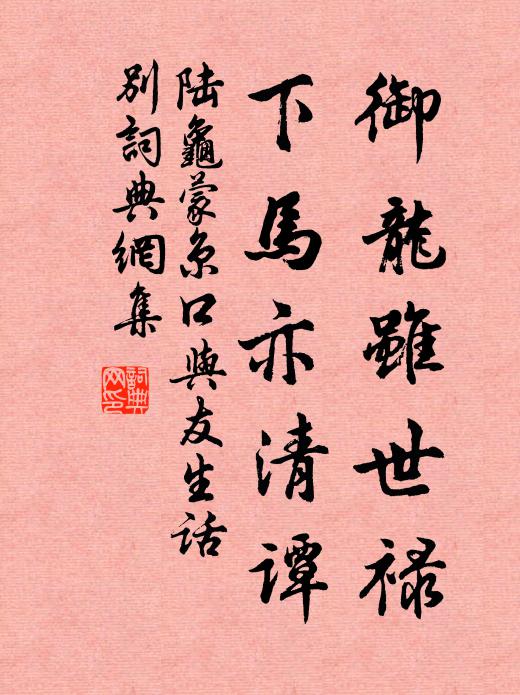 御龍雖世祿
下馬亦清譚
陆龜蒙京口與友生話
別詞典網集
詞典
网印